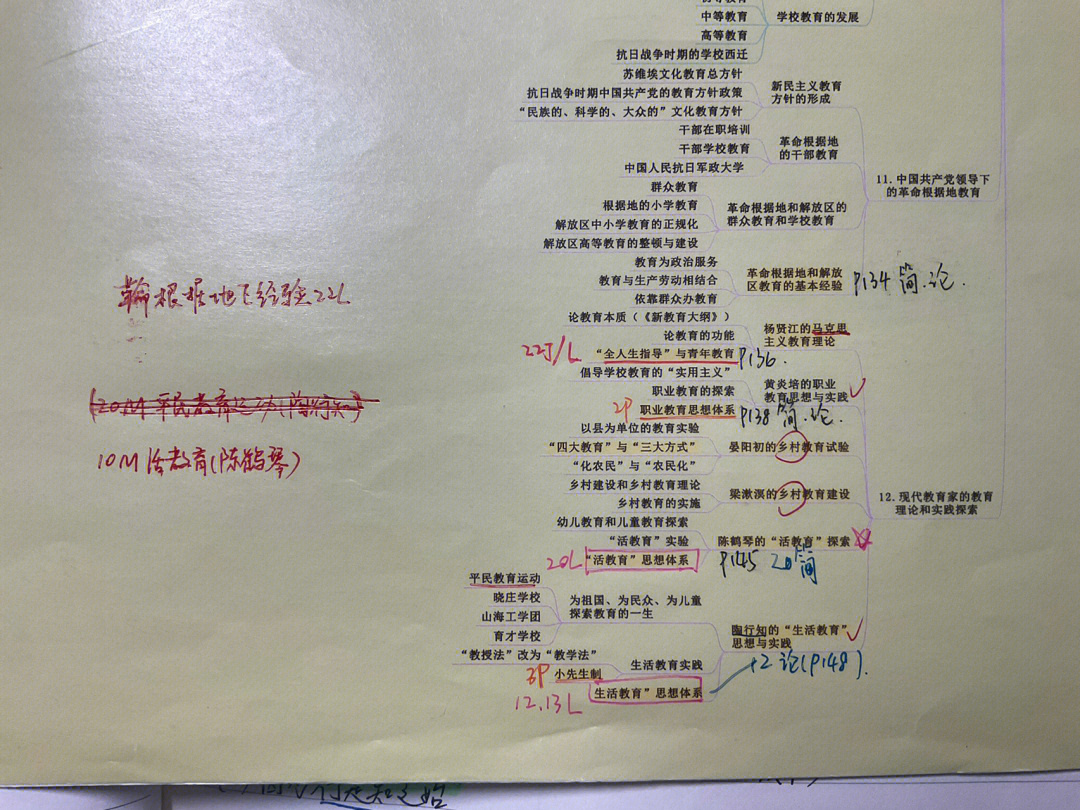 中等教育
学校教育的发展
高等教育
抗日战争时期的学校西迁
苏维埃文化教育总方针
抗日战争时期中国共产党的教育方针政策
新民主义教育
方针的形成
“民族的、科学的、大众的”文化教育方针
干部在职培训
干部学校教育
革命根据地
的干部教育
中国人民抗日军政大学
11.中国共产党领导下
的革命根据地教育
群众教育
根据地的小学教育
革命根据地和解放区的
群众教育和学校教育
解放区中小学教育的正规化
解放区高等教育的整顿与建设
教育为政治服务
教育与生产劳动相结合
革命根据地和解放
区教育的基本经验
P134 简.论.
依靠群众办教育
根据地 经验22L
论教育本质（《新教育大纲》）
论教育的功能
杨贤江的马克思
主义教育理论
22J/L
“全人生指导”与青年教育
P136.
倡导学校教育的“实用主义”
职业教育的探索
黄炎培的职业
教育思想与实践
2P
职业教育思想体系
P138 简.论.
以县为单位的教育实验
“四大教育”与“三大方式”
晏阳初的乡村教育试验
“化农民”与“农民化”
10M 活教育(陈鹤琴)
乡村建设和乡村教育理论
梁漱溟的乡村教育建设
乡村教育的实施
12.现代教育家的教育
理论和实践探索
幼儿教育和儿童教育探索
“活教育”实验
陈鹤琴的“活教育”探索
20L
“活教育”思想体系
P145 20简
平民教育运动
晓庄学校
为祖国、为民众、为儿童
探索教育的一生
山海工学团
育才学校
陶行知的“生活教育”
思想与实践
“教授法”改为“教学法”
生活教育实践
小先生制
12论(P148).
生活教育”思想体系
12.13L